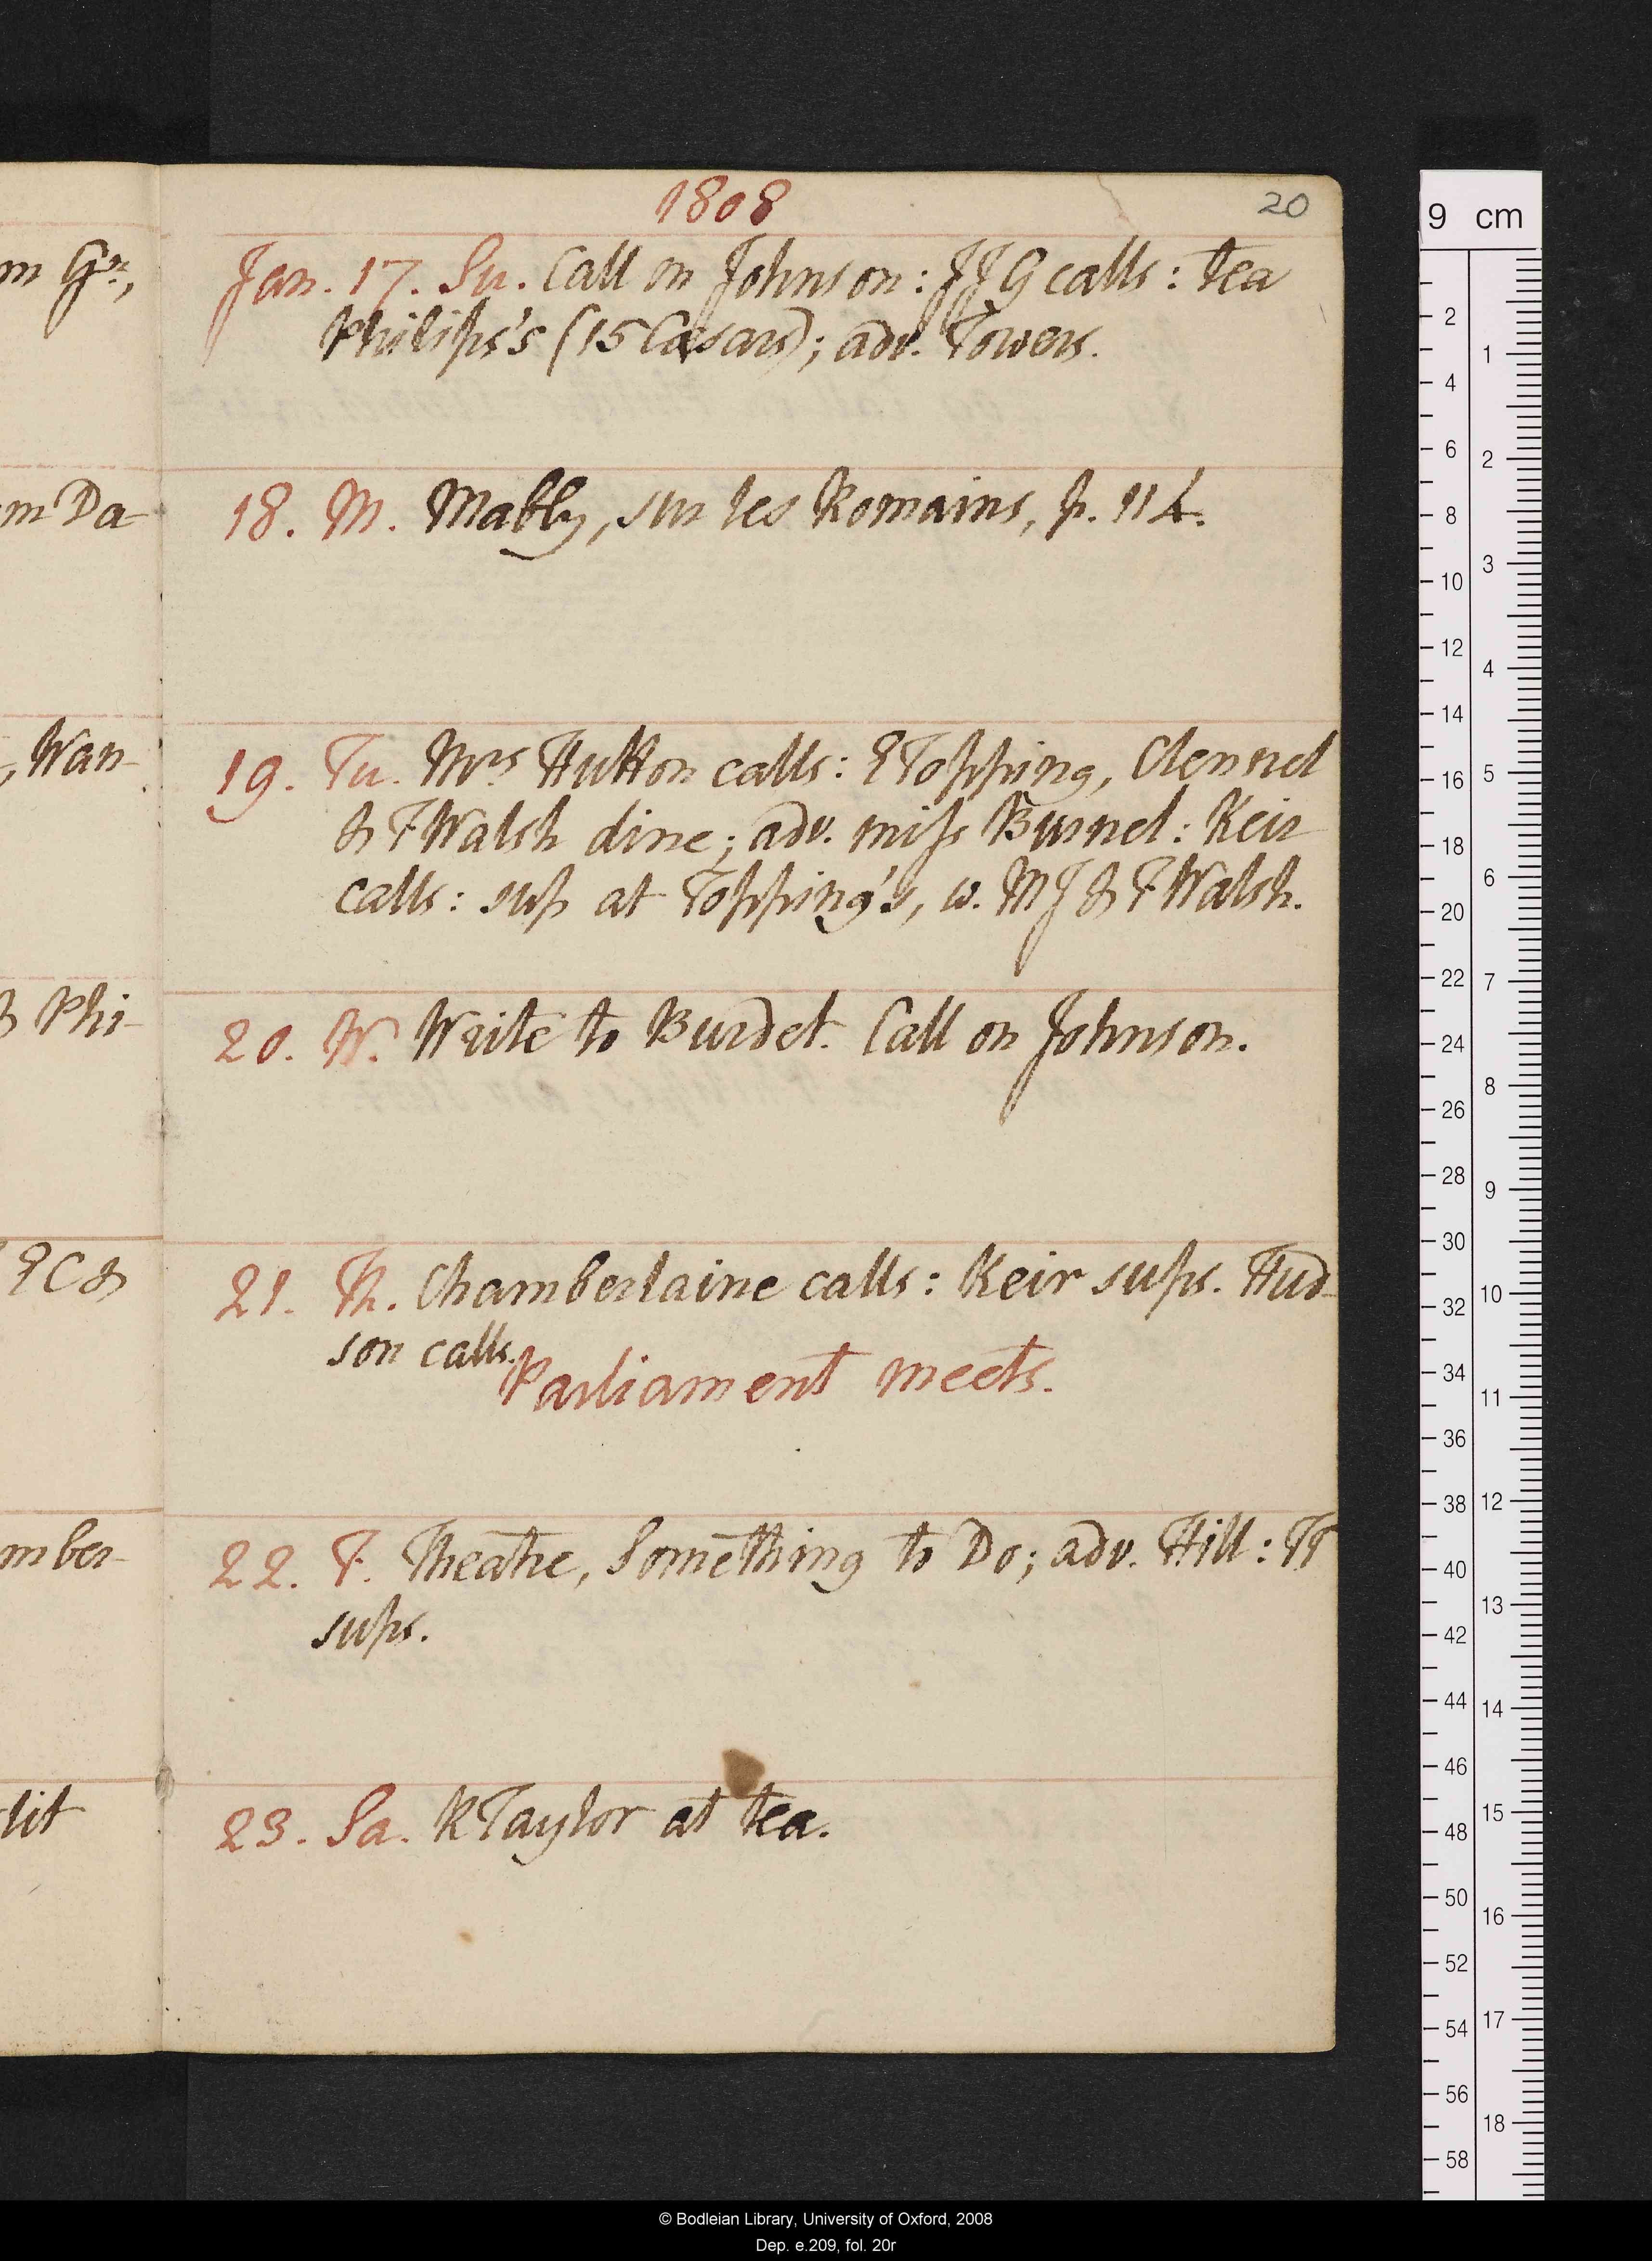 1808
20
Jan. 17. Su. Call on Johnson: JJG calls: tea
Philips's (15 Cæsars); adv. Towers.
18. M. Mably, sur les Romains, p. 114.
19. Tu. Mrs Hutton calls: ETopping, Clennel
& FWalsh dine; adv. miss Burnel: Keir
calls: sup at Topping's, w. MJ & FWalsh.
20. W. Write to Burdet. Call on Johnson.
21. Th. Chamberlaine calls: Keir sups. Hud-
son calls.
Parliament meets.
22. F. Theatre, Something to Do; adv. Hill: TT
sups.
23. Sa. RTaylor at tea.
m Gn,
m Da-
, Wan-
& Phi-
EC &
mber-
lit
9 cm
2
4
6
8
10
12
14
16
18
20
22
24
26
28
30
32
34
36
38
40
42
44
46
48
50
52
54
56
58
1
2
3
4
5
6
7
8
9
10
11
12
13
14
15
16
17
18
© Bodleian Library, University of Oxford, 2008
Dep. e.209, fol. 20r